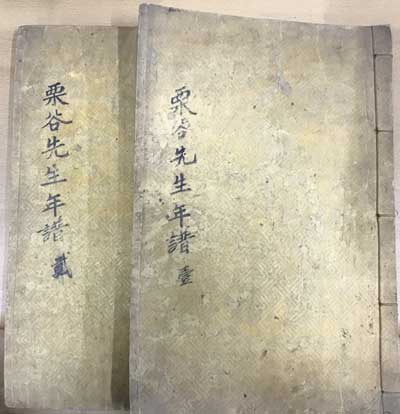 栗谷先生年譜 壹
栗谷先生年譜 貳